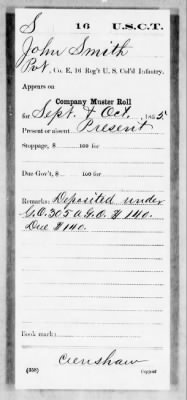 S 16 U.S.C.T.
John Smith
Pvt, Co. E, 16 Reg't U. S. Col'd Infantry.
Appears on
Company Muster Roll
for Sept. & Oct., 1865
Present or absent Present
Stoppage, $ 100 for
Due Gov't, $ 100 for
Remarks: Deposited under
G.O. 305 A.G.O. $140.
Due $140.
Book mark:
Crenshaw
(358) Copyist